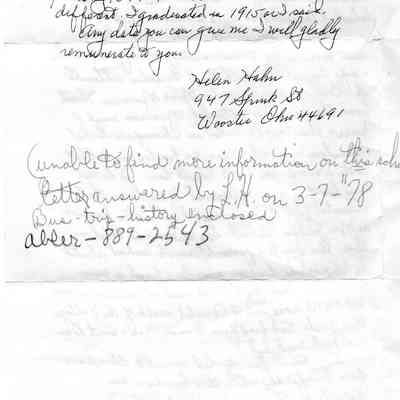 different. I graduated in 1915 as I said.
Any data you can give me I will gladly
remunerate to you.
Helen Hahn
947 Spink St
Wooster Ohio 44691
(unable to find more information on this
letter answered by L.H. on 3-7-"78
Bus-trip-history enclosed
abler-889-2543